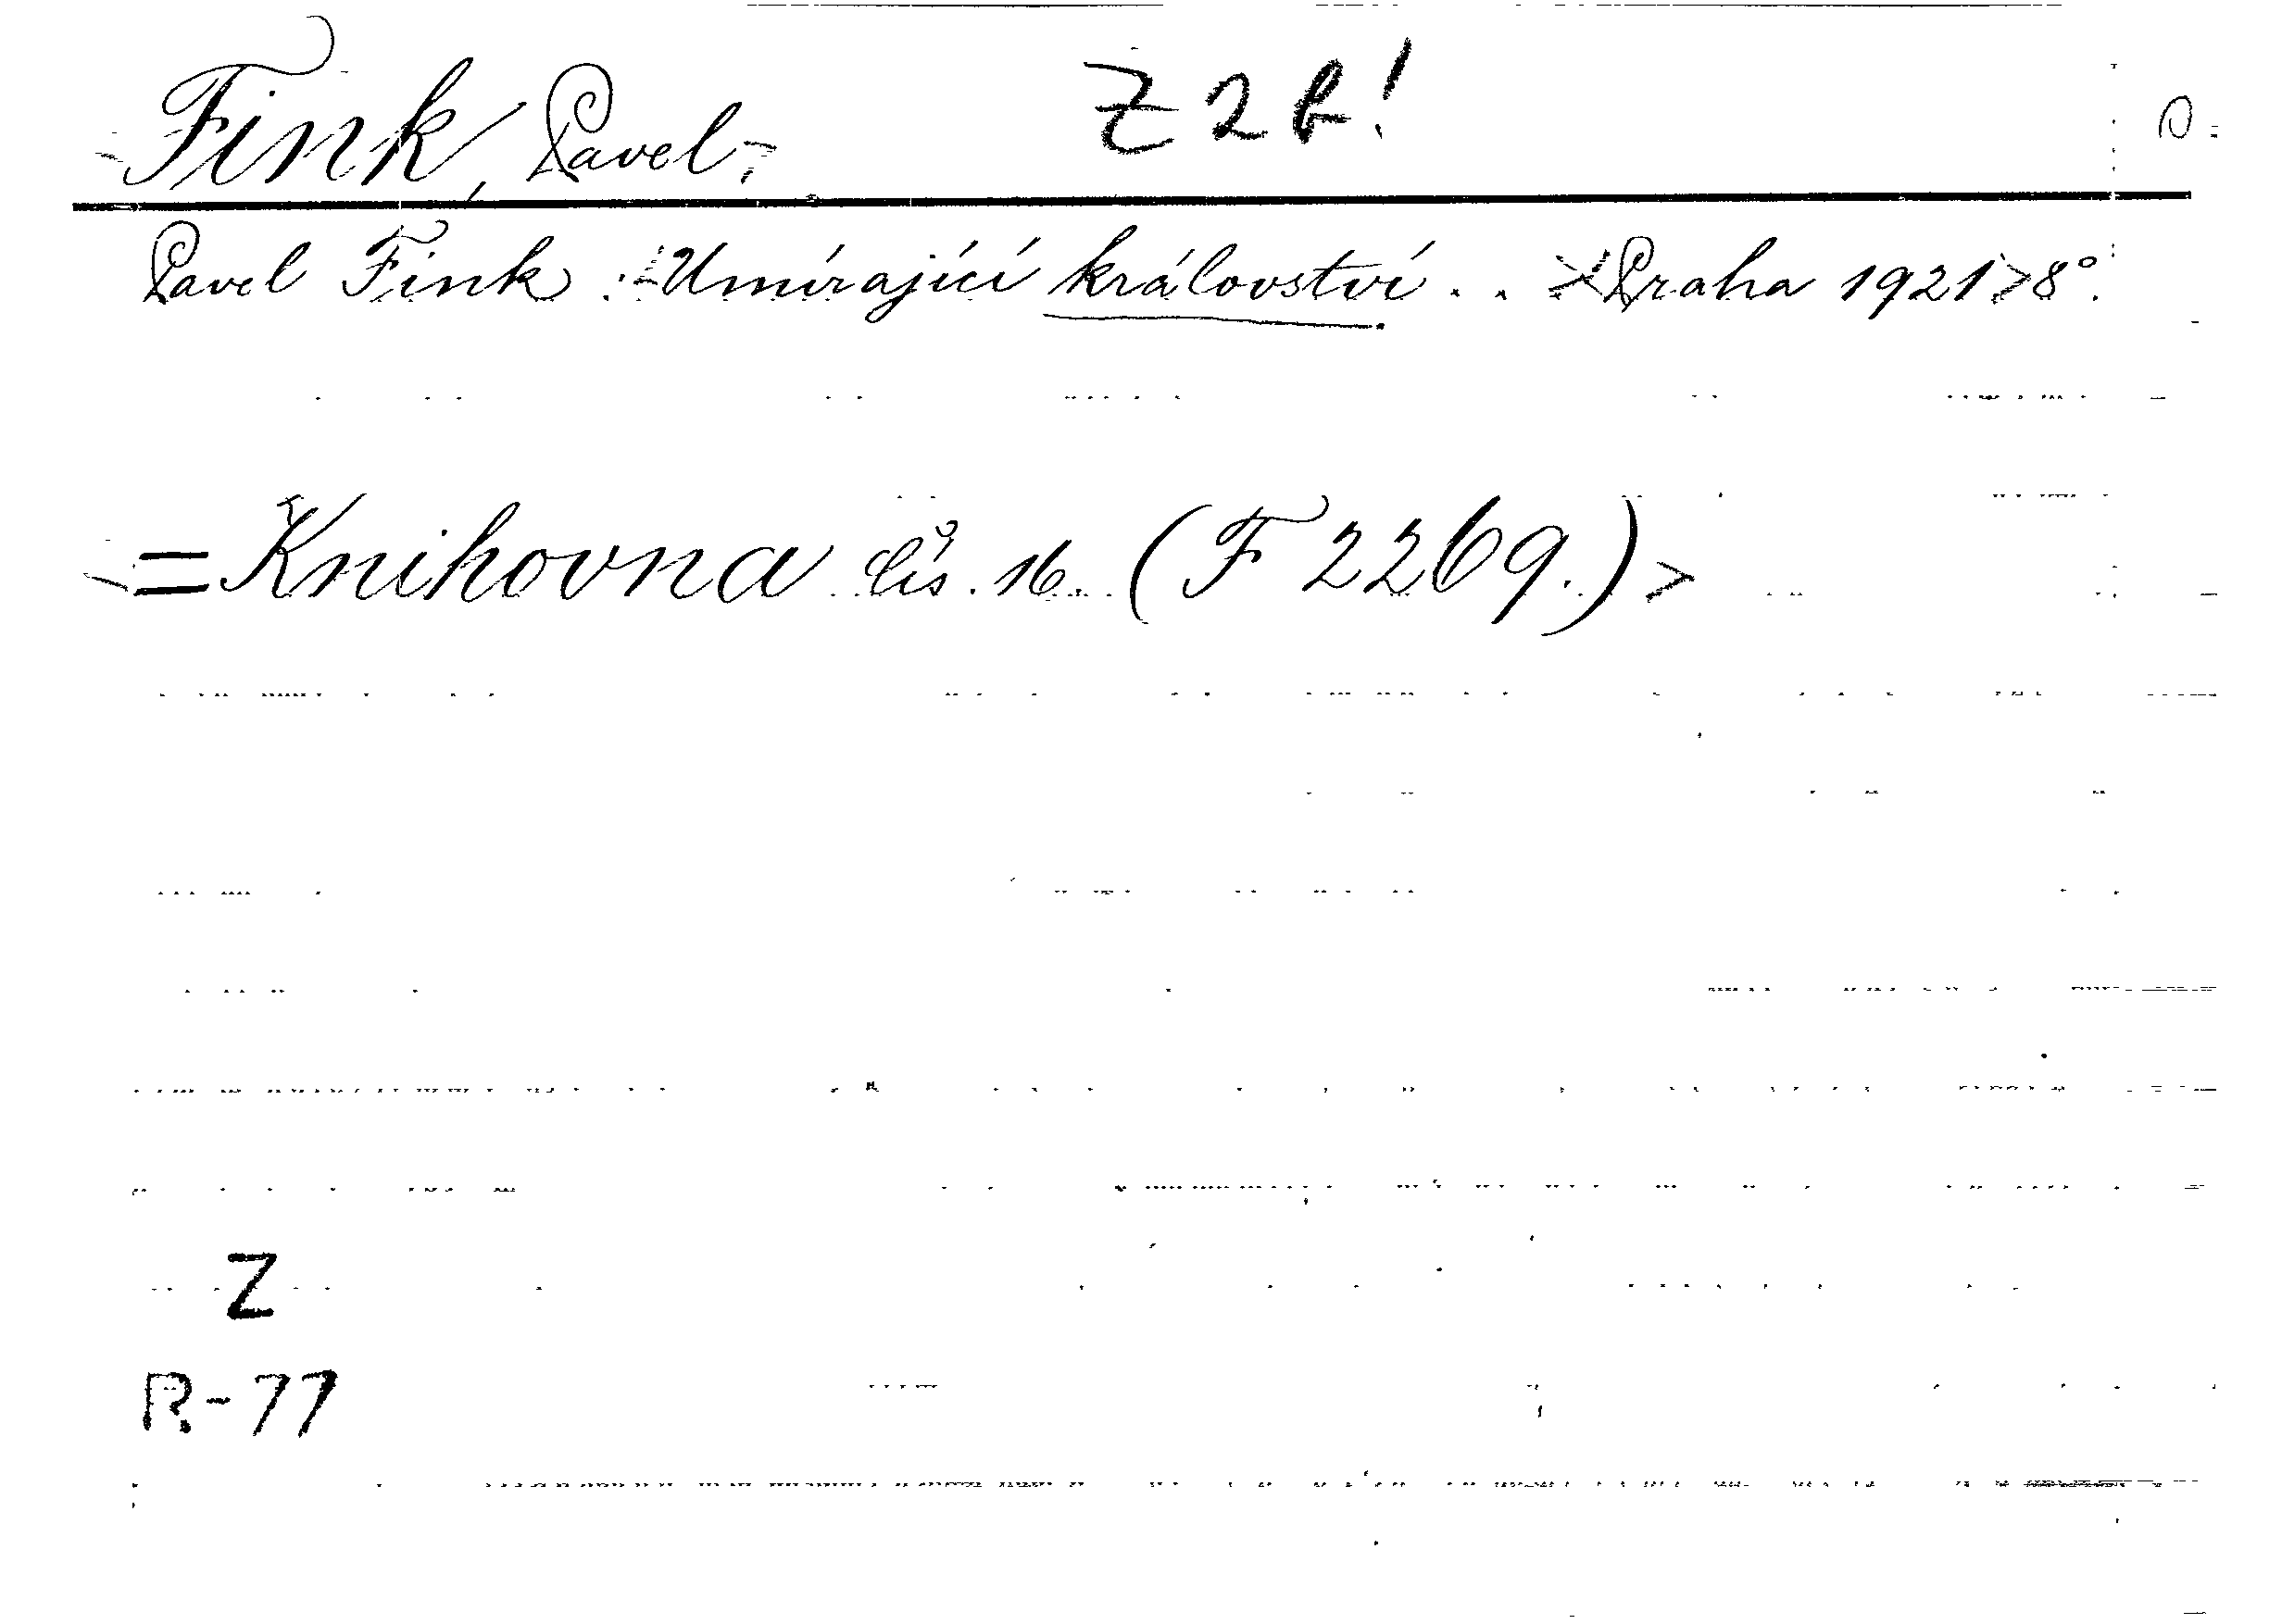 Fink, Pavel. Z 2 b!
Pavel Fink : Umírající království . . Praha 1921 8°.
= Knihovna čís. 16. (F 2269.)
Z
R-77